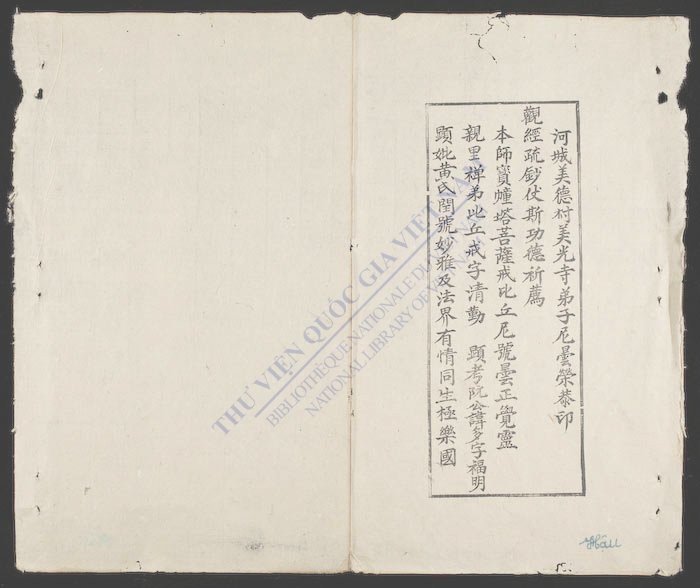 河城美德村美光寺弟子尼曇榮恭印
觀經疏鈔仗斯功德祈薦
本師寶幢塔菩薩戒比丘尼號曇正覺靈
親里禅弟比丘戒字清勤 顕考阮公諱多字福明
顕妣黃氏閏號妙雅及法界有情同生極樂國
THƯ VIỆN QUỐC GIA VIỆT NAM
BIBLIOTHÈQUE NATIONALE DU VIETNAM
NATIONAL LIBRARY OF VIETNAM